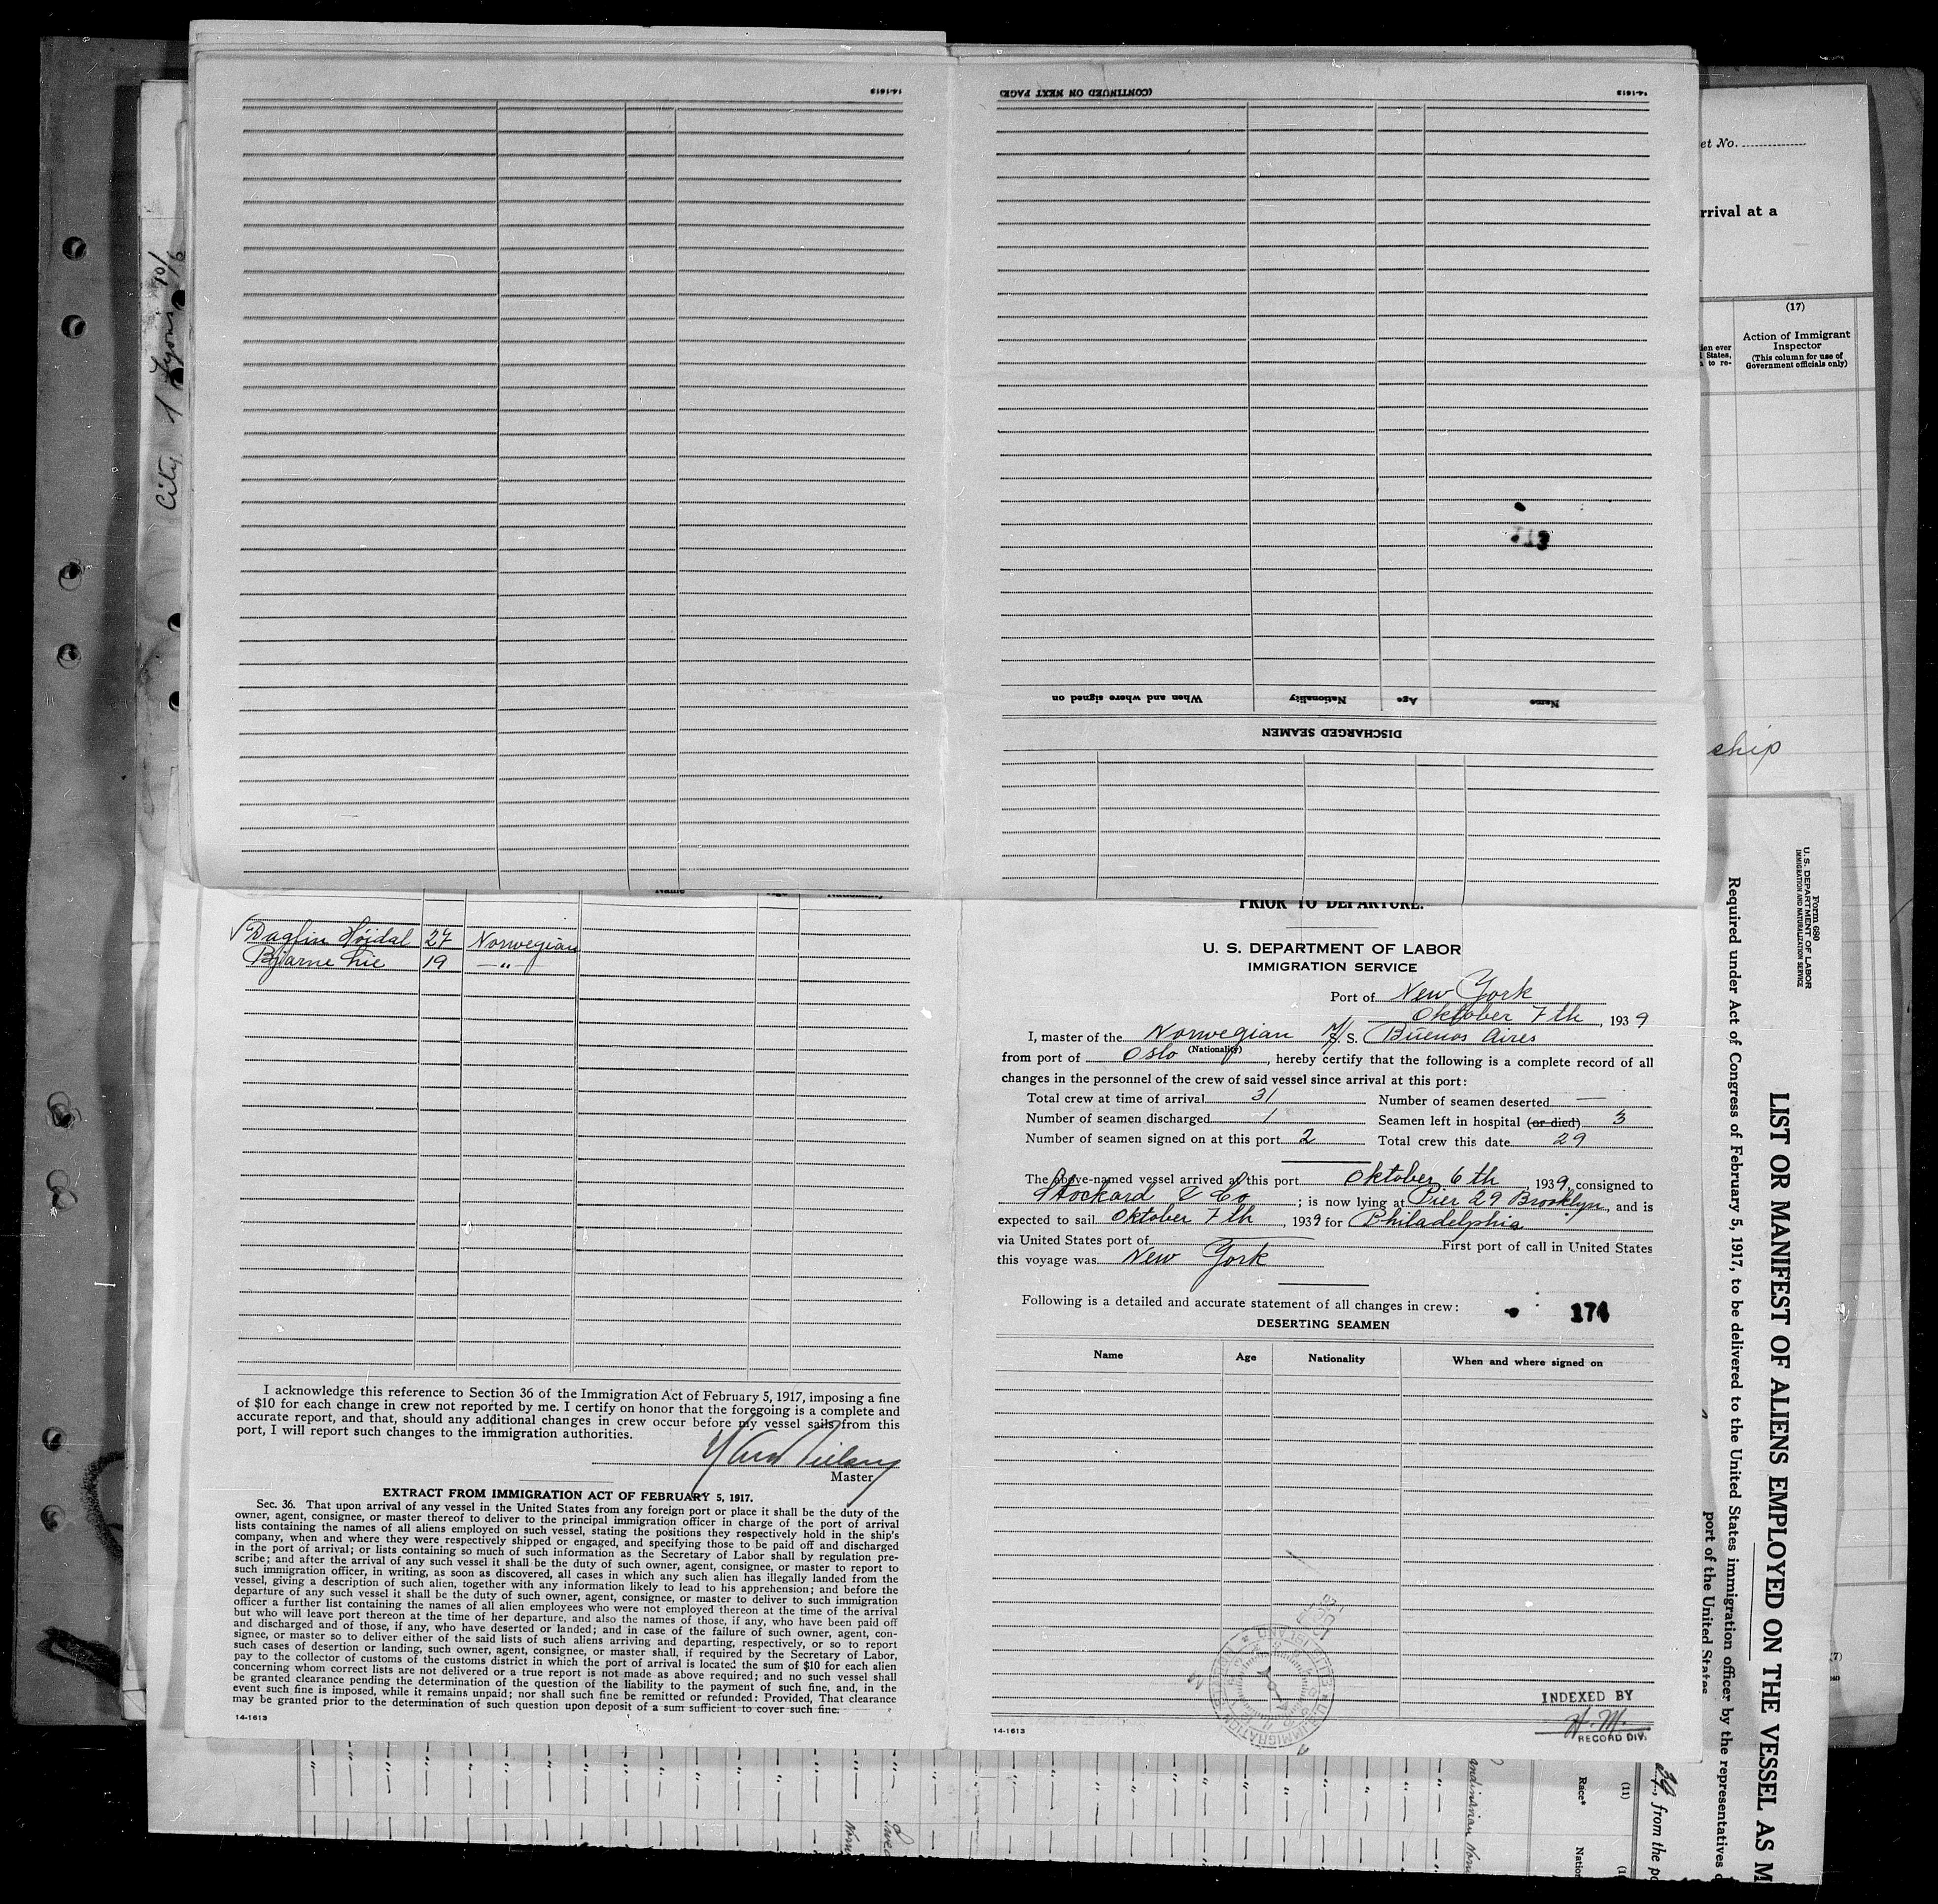 14-1613
(CONTINUED ON NEXT PAGE)
14-1613
When and where signed on
Nationality
Age
Name
DISCHARGED SEAMEN
City
Lyons
et No.
rrival at a
(17)
Action of Immigrant
Inspector
(This column for use of
Government officials only)
ien ever
States,
to re-
ship
Name
Daglin Höidal 27 Norwegian
Bjarne Lie 19 — " —
I acknowledge this reference to Section 36 of the Immigration Act of February 5, 1917, imposing a fine
of $10 for each change in crew not reported by me. I certify on honor that the foregoing is a complete and
accurate report, and that, should any additional changes in crew occur before my vessel sails from this
port, I will report such changes to the immigration authorities.
Master
EXTRACT FROM IMMIGRATION ACT OF FEBRUARY 5, 1917.
Sec. 36. That upon arrival of any vessel in the United States from any foreign port or place it shall be the duty of the
owner, agent, consignee, or master thereof to deliver to the principal immigration officer in charge of the port of arrival
lists containing the names of all aliens employed on such vessel, stating the positions they respectively hold in the ship's
company, when and where they were respectively shipped or engaged, and specifying those to be paid off and discharged
in the port of arrival; or lists containing so much of such information as the Secretary of Labor shall by regulation pre-
scribe; and after the arrival of any such vessel it shall be the duty of such owner, agent, consignee, or master to report to
such immigration officer, in writing, as soon as discovered, all cases in which any such alien has illegally landed from the
vessel, giving a description of such alien, together with any information likely to lead to his apprehension; and before the
departure of any such vessel it shall be the duty of such owner, agent, consignee, or master to deliver to such immigration
officer a further list containing the names of all alien employees who were not employed thereon at the time of the arrival
but who will leave port thereon at the time of her departure, and also the names of those, if any, who have been paid off
and discharged and of those, if any, who have deserted or landed; and in case of the failure of such owner, agent, con-
signee, or master so to deliver either of the said lists of such aliens arriving and departing, respectively, or so to report
such cases of desertion or landing, such owner, agent, consignee, or master shall, if required by the Secretary of Labor,
pay to the collector of customs of the customs district in which the port of arrival is located the sum of $10 for each alien
concerning whom correct lists are not delivered or a true report is not made as above required; and no such vessel shall
be granted clearance pending the determination of the question of the liability to the payment of such fine, and, in the
event such fine is imposed, while it remains unpaid; nor shall such fine be remitted or refunded: Provided, That clearance
may be granted prior to the determination of such question upon deposit of a sum sufficient to cover such fine.
14-1613
PRIOR TO DEPARTURE.
U. S. DEPARTMENT OF LABOR
IMMIGRATION SERVICE
Port of New York
Oktober 7th, 1939
I, master of the Norwegian M/S. Buenos Aires
(Nationality)
from port of Oslo, hereby certify that the following is a complete record of all
changes in the personnel of the crew of said vessel since arrival at this port:
Total crew at time of arrival 31 Number of seamen deserted —
Number of seamen discharged 1 Seamen left in hospital (or died) 3
Number of seamen signed on at this port 2 Total crew this date 29
The above-named vessel arrived at this port Oktober 6th, 1939, consigned to
Stockard & Co; is now lying at Pier 29 Brooklyn, and is
expected to sail Oktober 7th, 1939 for Philadelphia
via United States port of — First port of call in United States
this voyage was New York
Following is a detailed and accurate statement of all changes in crew:
174
DESERTING SEAMEN
Name Age Nationality When and where signed on
INDEXED BY
H. M.
RECORD DIV.
14-1613
Form 680
U. S. DEPARTMENT OF LABOR
IMMIGRATION AND NATURALIZATION SERVICE
LIST OR MANIFEST OF ALIENS EMPLOYED ON THE VESSEL AS M
Required under Act of Congress of February 5, 1917, to be delivered to the United States immigration officer by the representatives
port of the United States
39, from the po
(11)
Race*
Nation